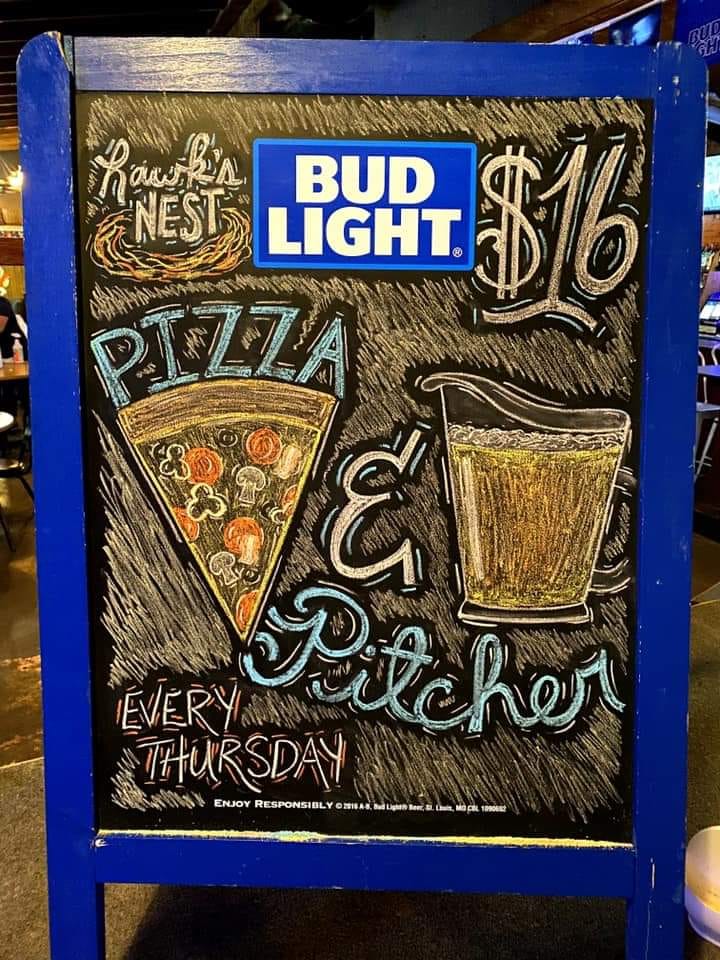 BUD
GHT
Hawk's
NEST
BUD
LIGHT®
$16
PIZZA
&
Pitcher
EVERY
THURSDAY
ENJOY RESPONSIBLY © 2016 A-B, Bud Light® Beer, St. Louis, MO CBL 1090602